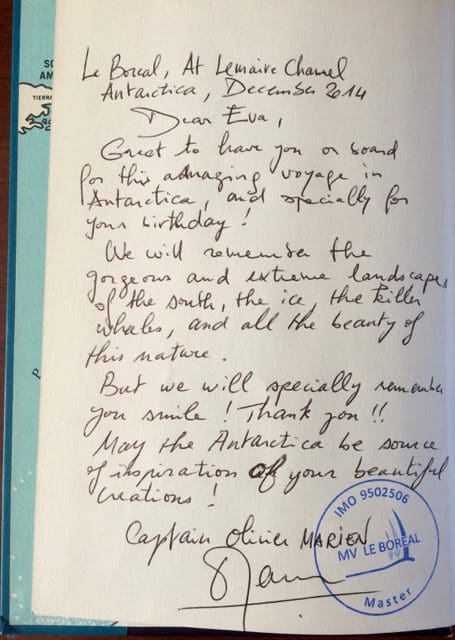 SO
AM
TIERRA
Le Boreal, At Lemaire Channel
Antarctica, December 2014
Dear Eva,
Great to have you on board
for this amazing voyage in
Antarctica, and specially for
your birthday!
We will remember the
gorgeous and extreme landscapes
of the south, the ice, the killer
whales, and all the beauty of
this nature.
But we will specially remember
you smile! Thank you!!
May the Antarctica be source
of inspiration of your beautiful
creations!
Captain Olivier MARIEN
IMO 9502506
MV LE BORÉAL
Master